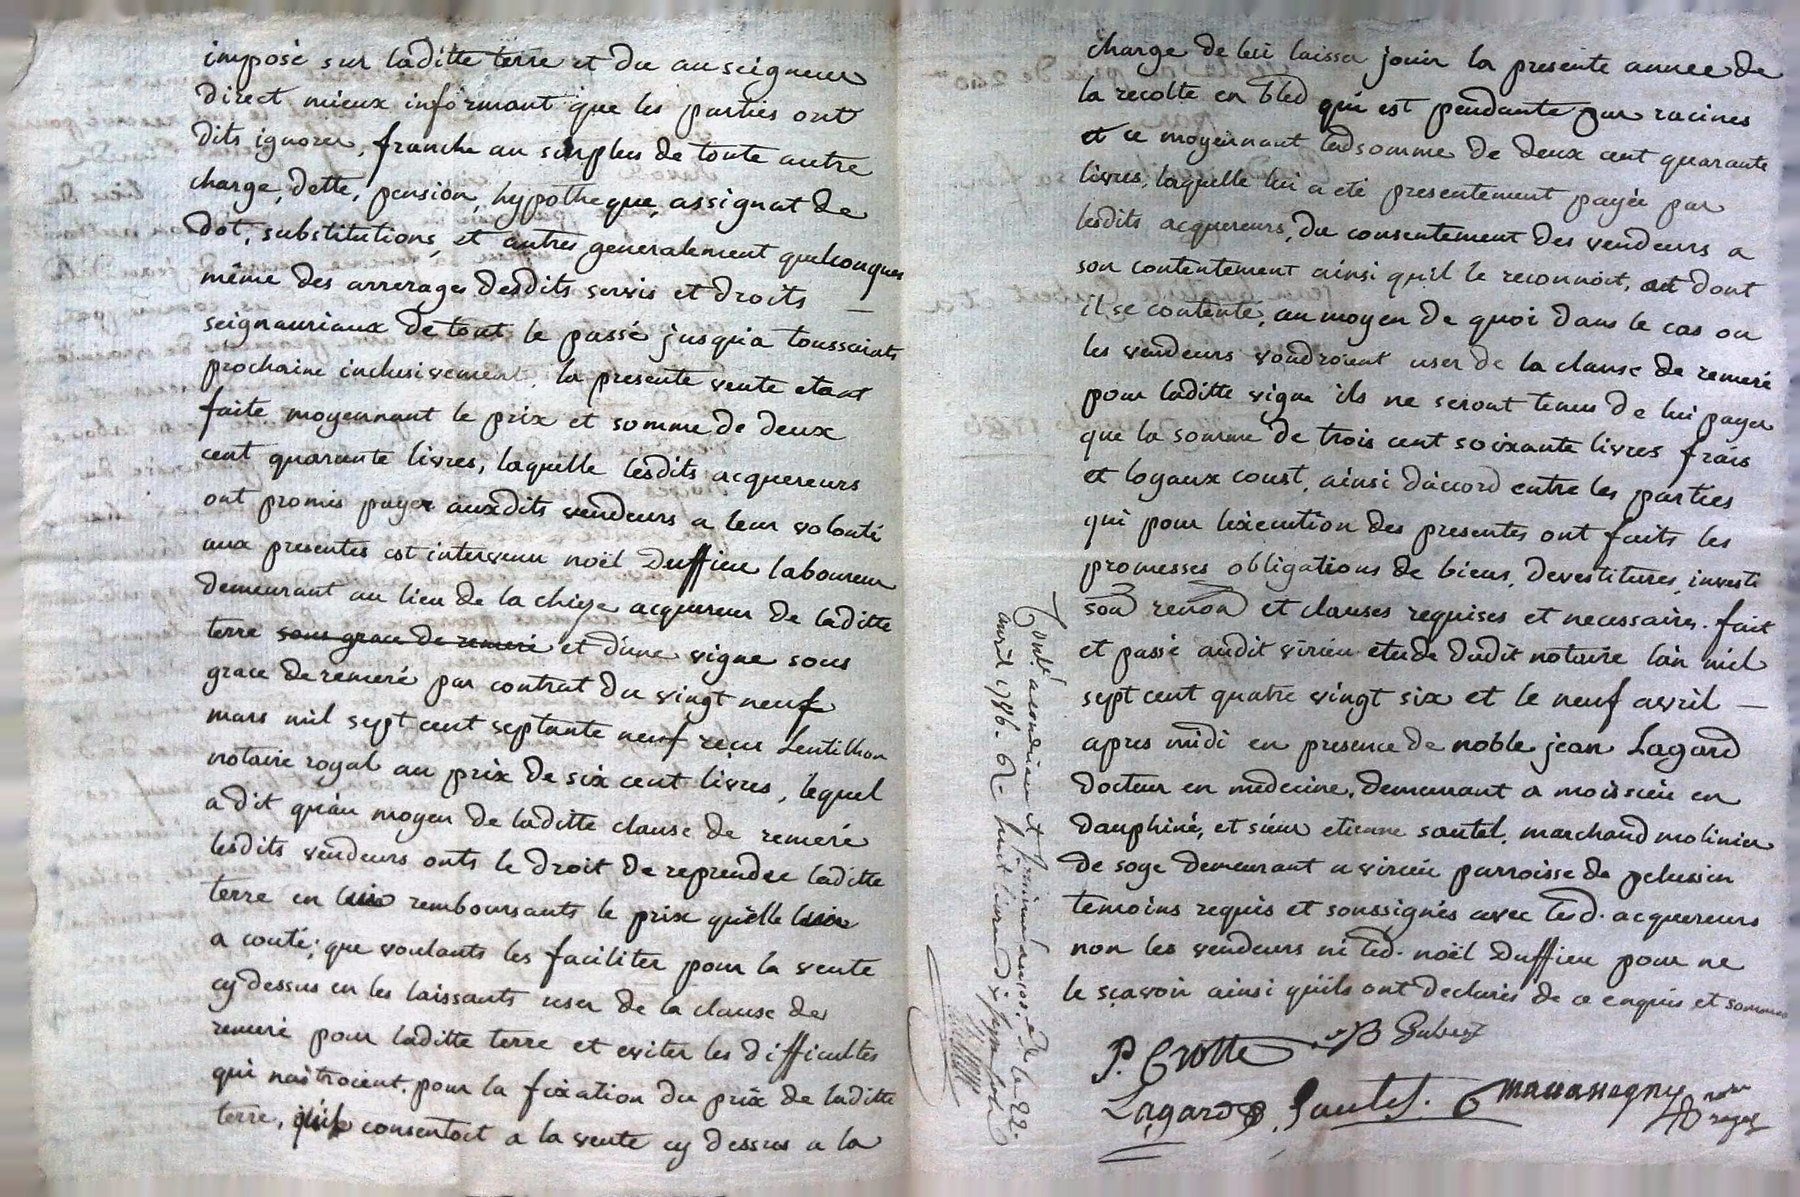 imposé sur laditte terre et du au seigneur
direct mieux informant que les parties ont
dits ignorer, franche au surplus de toute autre
charge, dette, pension, hypotheque, assignat de
dot, substitutions, et autres generalement quelconques
même des arrerages desdits servis et droits —
seignauriaux de tout le passé jusqu'a toussaints
prochaine inclusivement, la presente vente etant
faite moyennant le prix et somme de deux
cent quarante livres, laquelle lesdits acquereurs
ont promis payer auxdits vendeurs a leur volonté
aux presentes est intervenu noël Duffieu laboureur
demeurant au lieu de la chieze acquereur de laditte
terre sous grace de remeré et d'une vigne sous
grace de remeré par contrat du vingt neuf
mars mil sept cent septante neuf reçu Lentillon
notaire royal au prix de six cent livres, lequel
a dit qu'au moyen de laditte clause de remeré
lesdits vendeurs onts le droit de reprendre laditte
terre en lui remboursants le prix qu'elle lui
a couté; que voulants les faciliter pour la vente
cy dessus en les laissants user de la clause de
remeré pour laditte terre et eviter les difficultés
qui naitroient pour la fixation du prix de laditte
terre, consentoit a la vente cy dessus a la
charge de lui laisser jouir la presente annee de
la recolte en bled qui est pendante par racines
et ce moyennant lad somme de deux cent quarante
livres, laquelle lui a eté presentement payée par
lesdits acquereurs, du consentement des vendeurs a
son contentement ainsi qu'il le reconnoit, et dont
il se contente, au moyen de quoi dans le cas ou
les vendeurs voudroient user de la clause de remeré
pour laditte vigne ils ne seront tenus de lui payer
que la somme de trois cent soixante livres frais
et loyaux coust, ainsi d'accord entre les parties
qui pour l'exécution des presentes ont faits les
promesses obligations de biens, devestitures, investi
son renon et clauses requises et necessaires. fait
et passé audit virieu etude dudit notaire l'an mil
sept cent quatre vingt six et le neuf avril —
apres midi en presence de noble jean Lagard
docteur en medecine, demeurant a moissieu en
dauphiné, et sieur etienne sautel, marchand molinier
de soye demeurant a virieu parroisse de pelussin
temoins requis et soussignés avec lesd. acquereurs
non les vendeurs ni led. noël Duffieu pour ne
le sçavoir ainsi qu'ils ont declarés de ce enquis et sommés
P. Crotte
JB Gubert
Lagard
Sautel
royal
Contlé a condrieu et
avril 1786. R. huit livres dix sept sols
le 22.